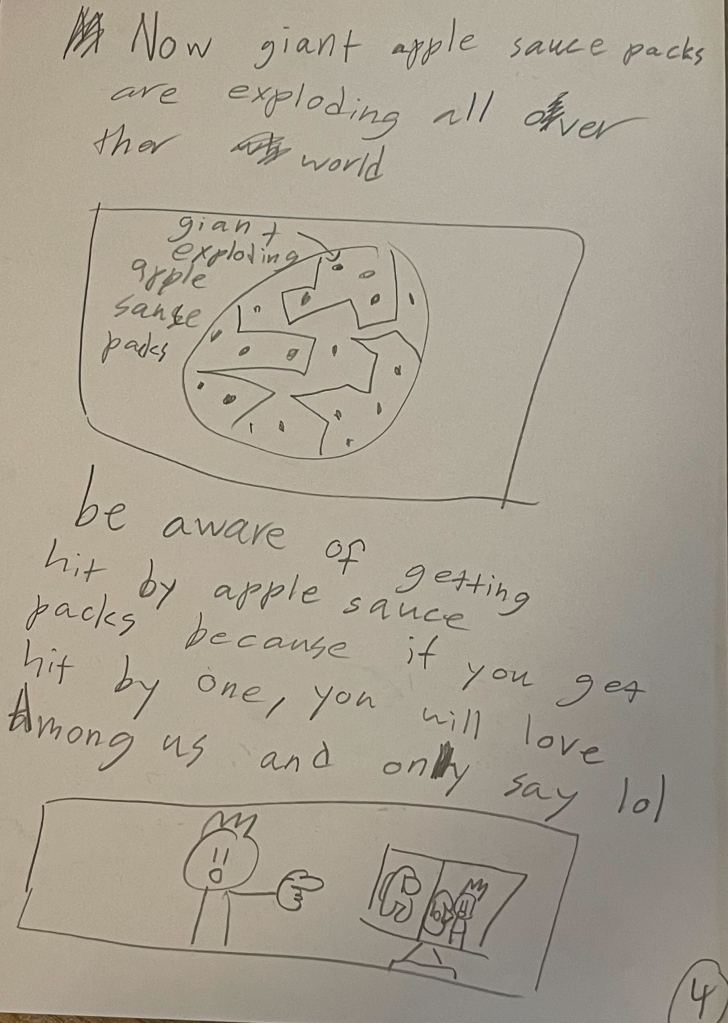 Now giant apple sauce packs
are exploding all over
ther world
giant
exploding
apple
sause
packs
be aware of getting
hit by apple sauce
packs because if you get
hit by one, you will love
Among us and only say lol
4